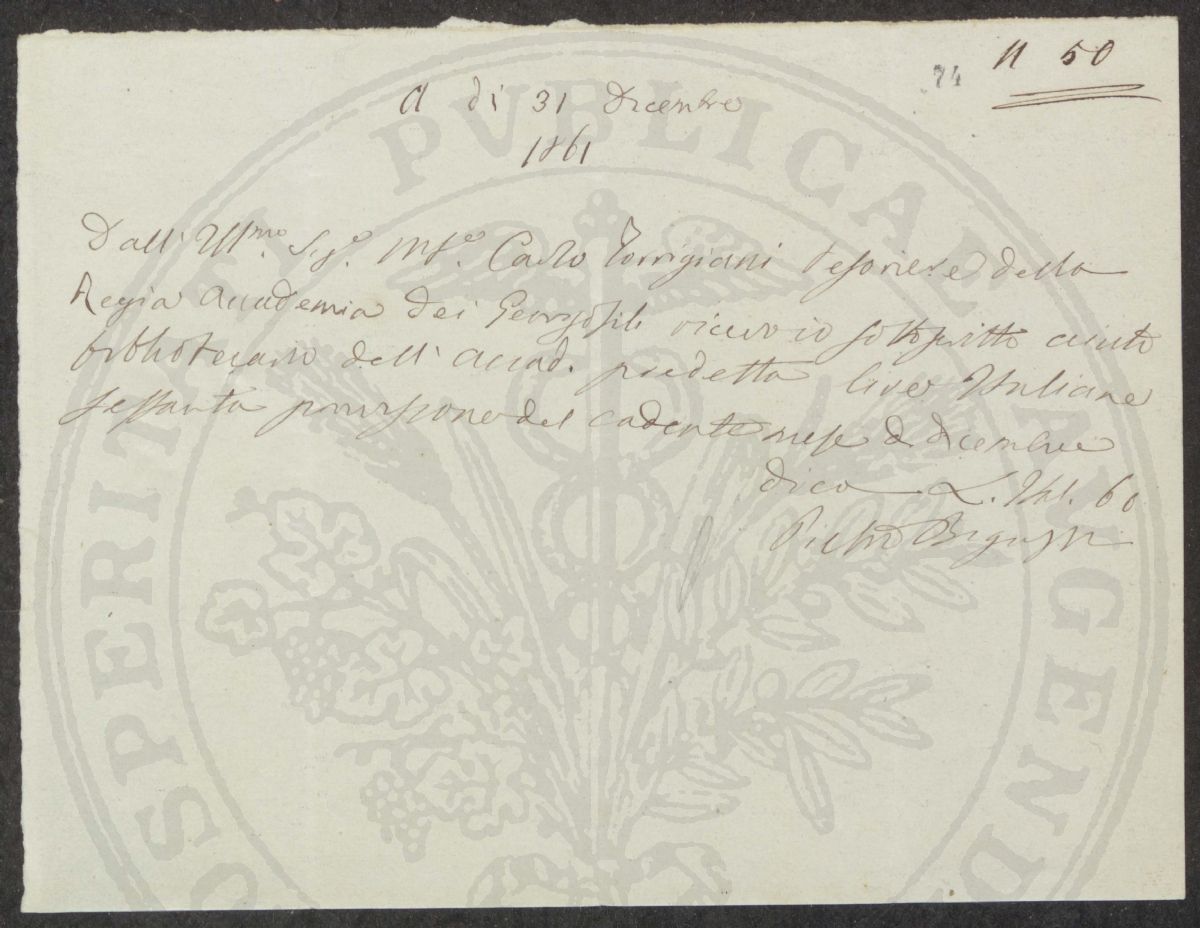 74
N 50
A dì 31 Dicembre
1861
Dall' Ill.mo Sig.e M.se Carlo Torrigiani Tesoriere della
Regia Accademia dei Georgofili ricevo io sottoscritto aiuto
bibliotecario dell' Accad. predetta lire Italiane
sessanta provvisione del cadente mese di dicembre
dico L. Ital. 60
Pietro Bigazzi
PROSPERITATI PVBLICAE AVGENDAE